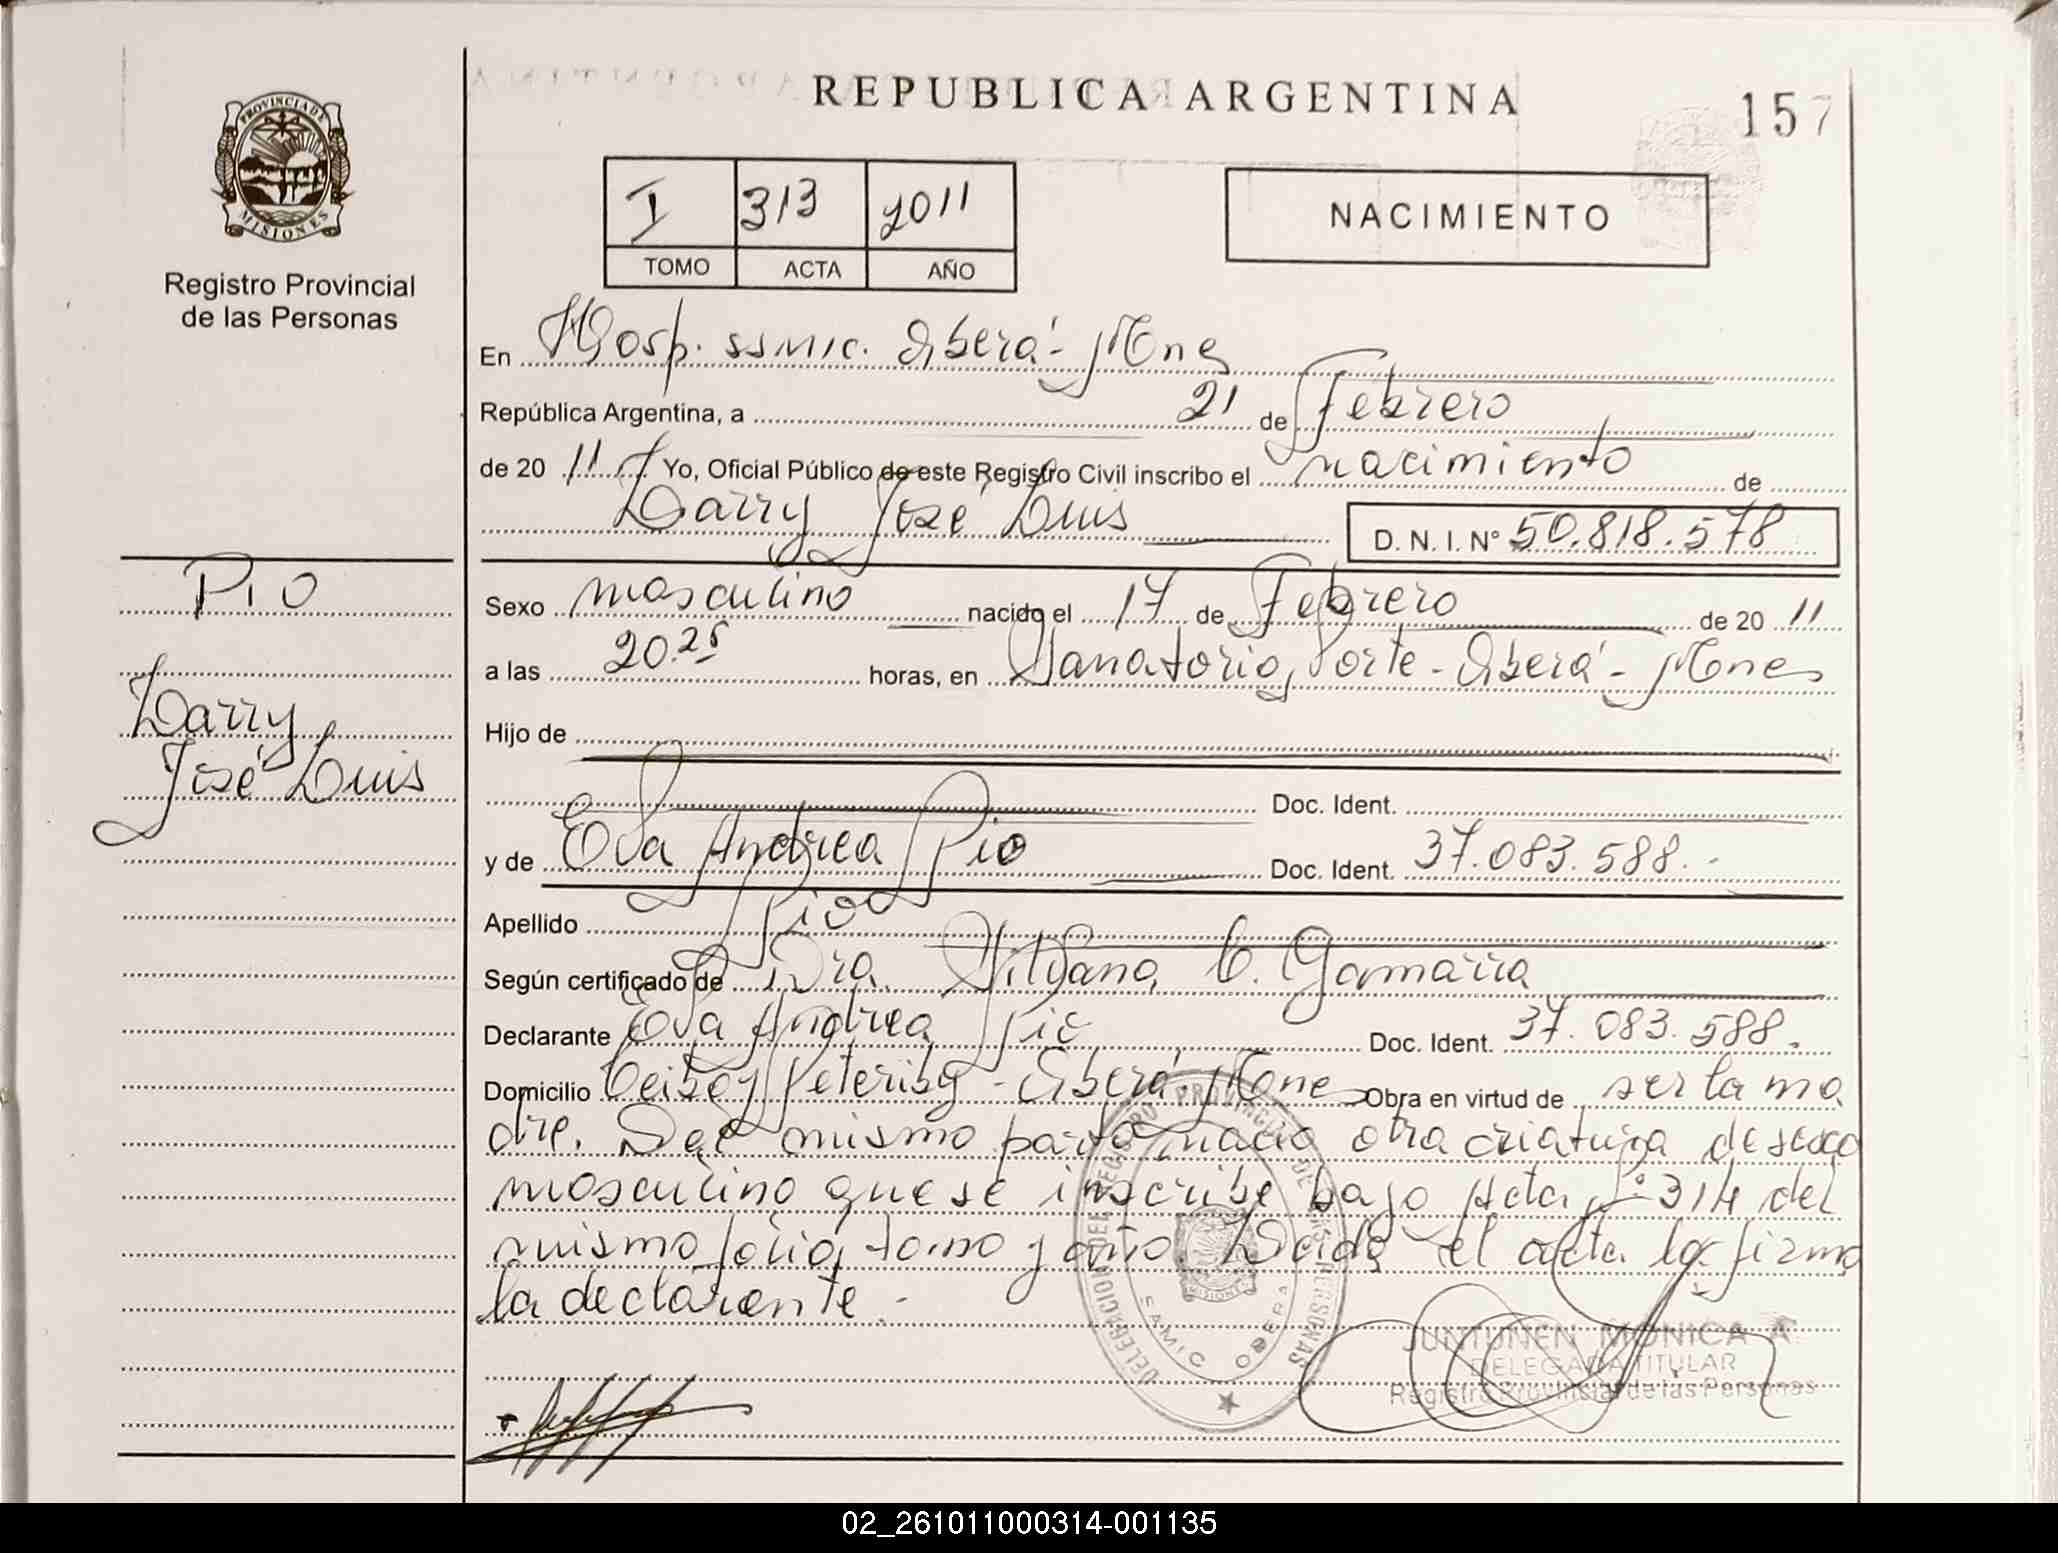 REPUBLICA ARGENTINA
157
PROVINCIA DE
MISIONES
Registro Provincial
de las Personas
I 313 2011
TOMO ACTA AÑO
NACIMIENTO
En Hosp. SSMIC. Oberá - Mnes
República Argentina, a 21 de Febrero
de 20 11 Yo, Oficial Público de este Registro Civil inscribo el nacimiento de
Larry José Luis D. N. I. Nº 50.818.578
PIO
Larry
José Luis
Sexo masculino nacido el 17 de Febrero de 20 11
a las 20.25 horas, en Sanatorio Norte - Oberá - Mnes
Hijo de
Doc. Ident.
y de Eva Andrea Pio Doc. Ident. 37.083.588.-
Apellido Pio
Según certificado de Dra. C. Gamarra
Declarante Eva Andrea Pio Doc. Ident. 37.083.588.
Domicilio Oberá - Mnes Obra en virtud de ser la ma
dre. Del mismo parto nació otra criatura de sexo
masculino que se inscribe bajo Acta Nº 314 del
mismo folio, tomo y año Leída el acta la firma
la declarante.
DELEGACION DEL REGISTRO PROVINCIAL DE LAS PERSONAS
SAMIC OBERA
MISIONES
JUNTUNEN MONICA A.
DELEGADA TITULAR
Registro Provincial de las Personas
02_261011000314-001135